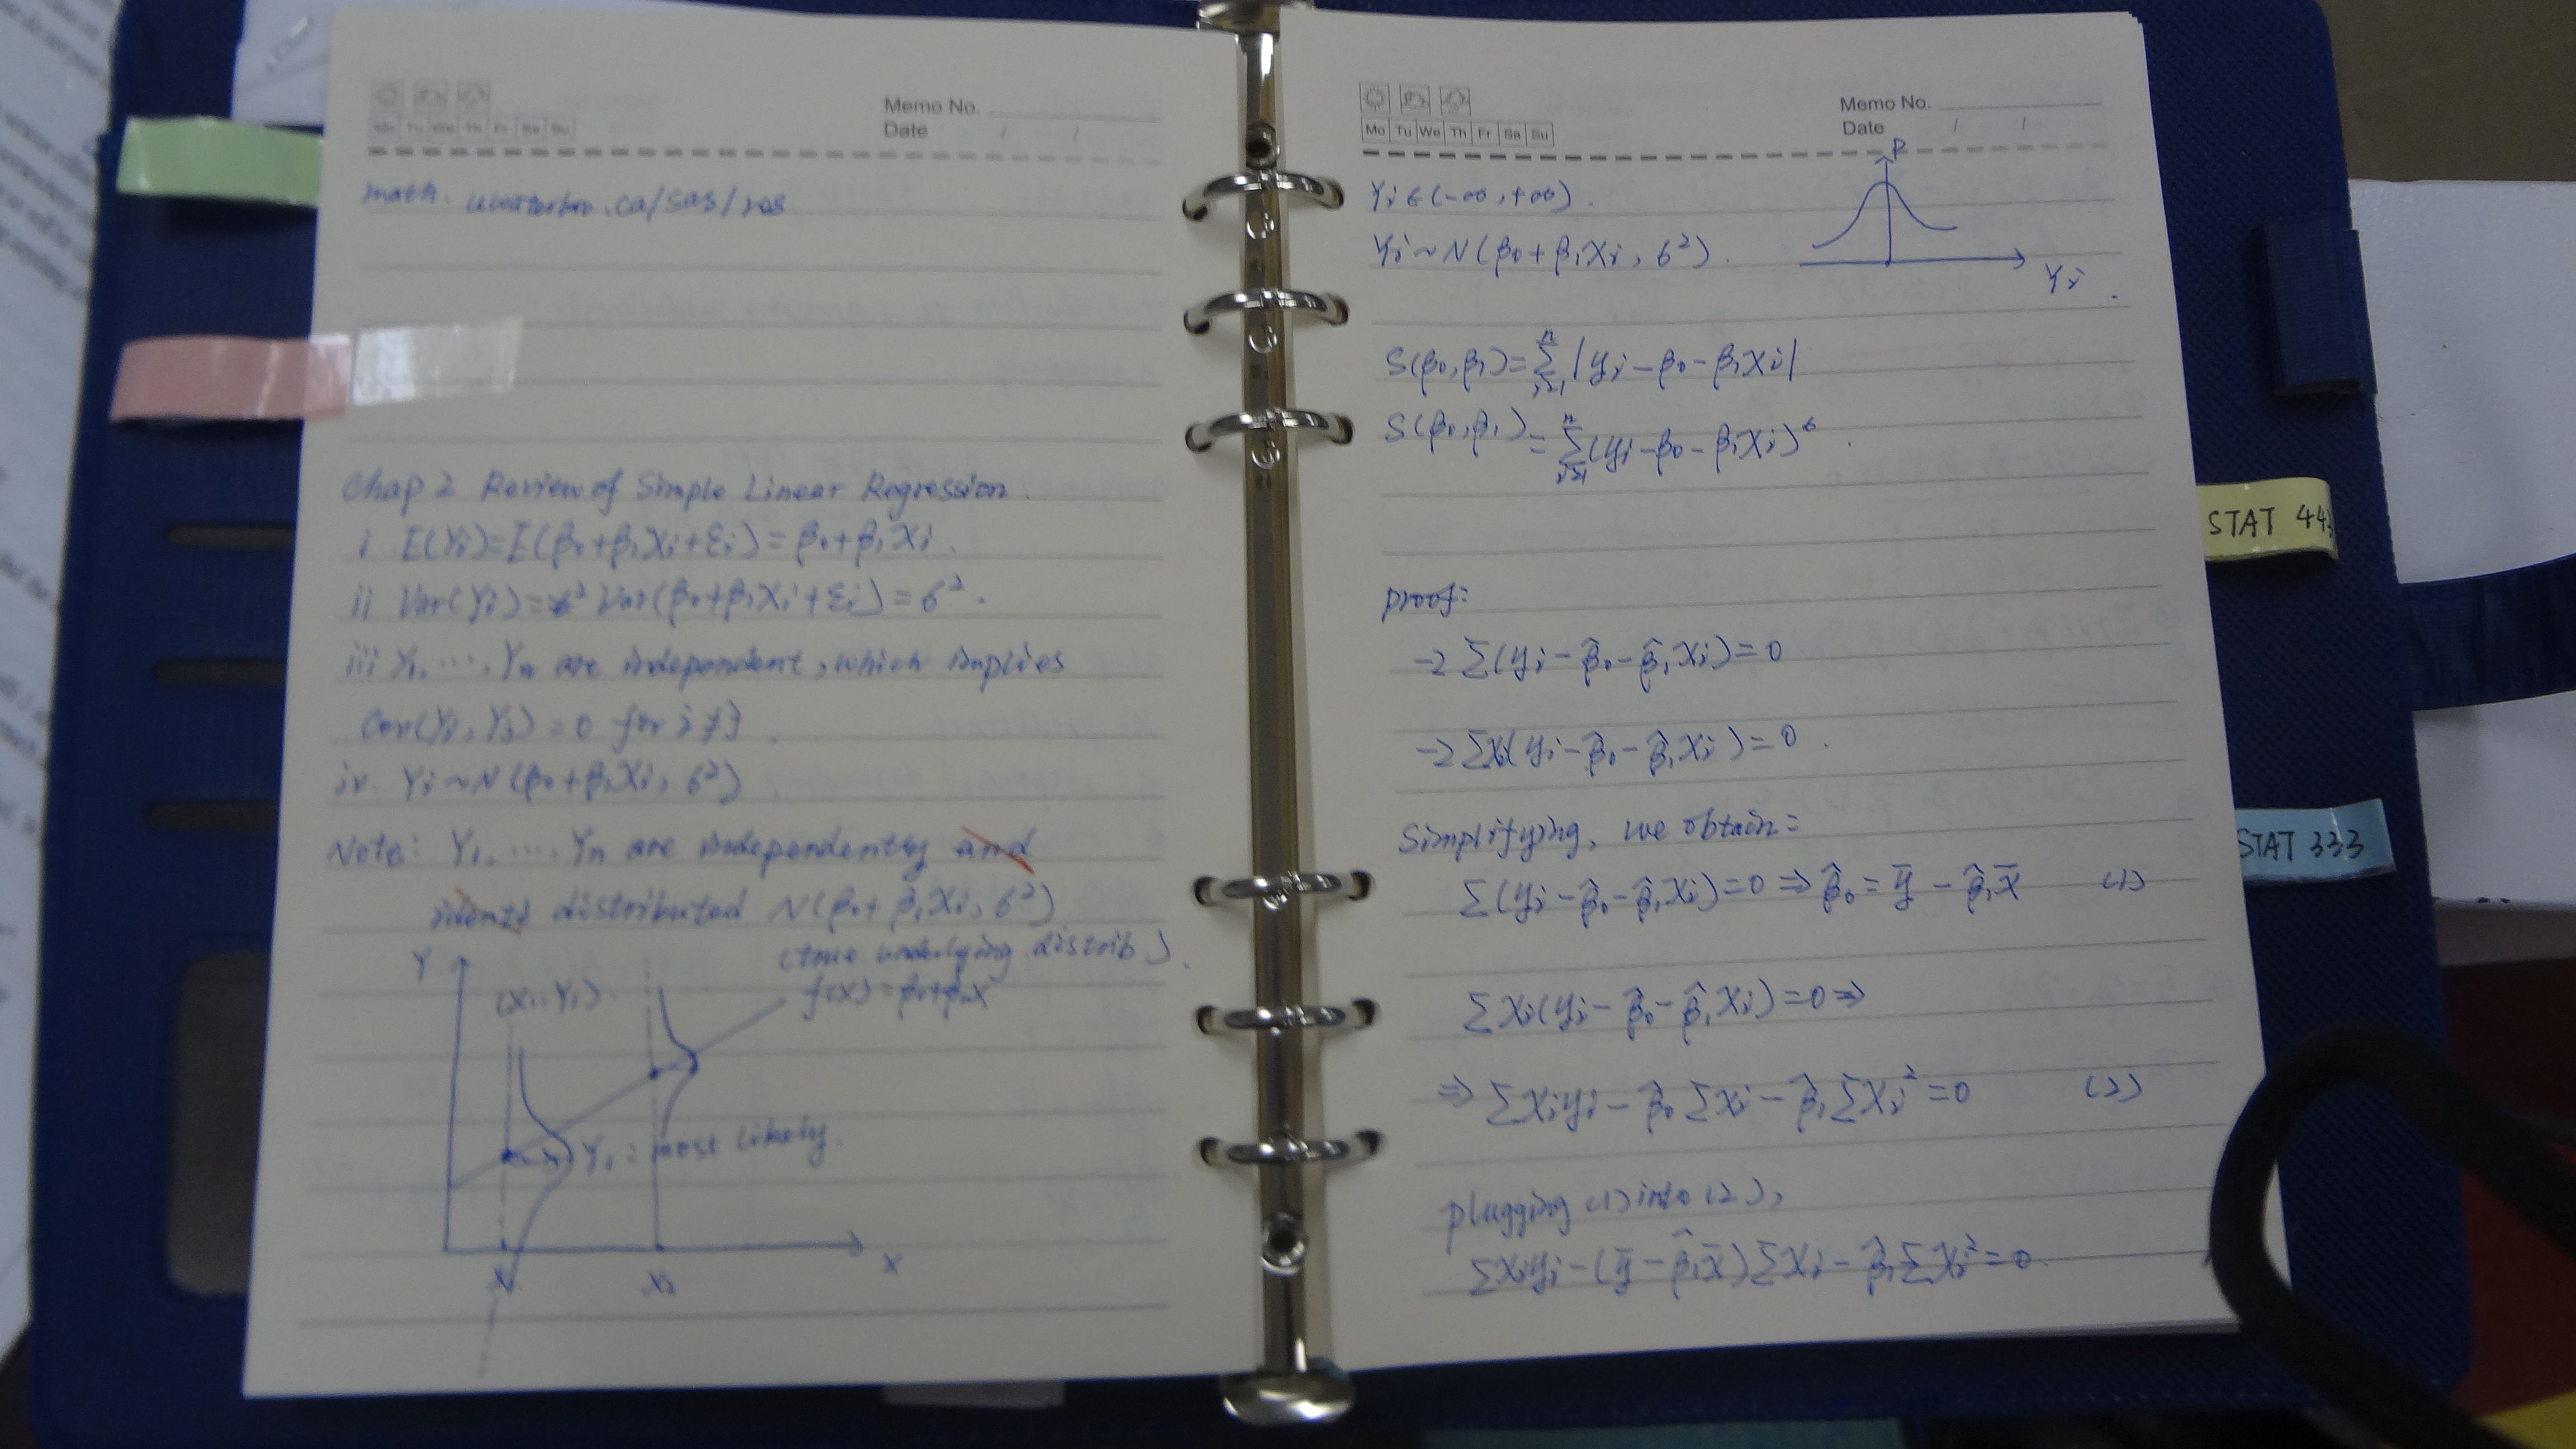 Memo No.
Date / /
Mo Tu We Th Fr Sa Su
math. uwaterloo.ca/sas/
Chap 2 Review of Simple Linear Regression.
i E(Yi)=E(β0+β1Xi+εi)=β0+β1Xi.
ii Var(Yi)= Var(β0+β1Xi+εi)=б².
iii Y1,...,Yn are independent, which implies
Cov(Yi, Yj)=0 for i≠j.
iv. Yi~N(β0+β1Xi, б²)
Note: Y1,...,Yn are independently and
identi distributed N(β0+β1Xi, б²)
(true underlying distrib).
Y
(X1, Y1)
f(X)=β0+β1X
Y1 = most likely.
X1
X2
X
Memo No.
Date / /
Mo Tu We Th Fr Sa Su
P
Yi∈(-∞,+∞).
Yi~N(β0+β1Xi, б²).
Yi
S(β0,β1)=Σ|yi-β0-β1Xi|
n
i=1
S(β0,β1)=Σ(yi-β0-β1Xi)⁶.
n
i=1
proof:
-2Σ(yi-β̂0-β̂1Xi)=0
-2ΣXi(yi-β̂0-β̂1Xi)=0.
Simplifying, we obtain:
Σ(yi-β̂0-β̂1Xi)=0⇒β̂0=ȳ-β̂1x̄ (1)
ΣXi(yi-β̂0-β̂1Xi)=0⇒
⇒ΣXiyi-β̂0ΣXi-β̂1ΣXi²=0 (2)
plugging (1) into (2),
ΣXiyi-(ȳ-β̂1x̄)ΣXi-β̂1ΣXi²=0.
STAT 44
STAT 333